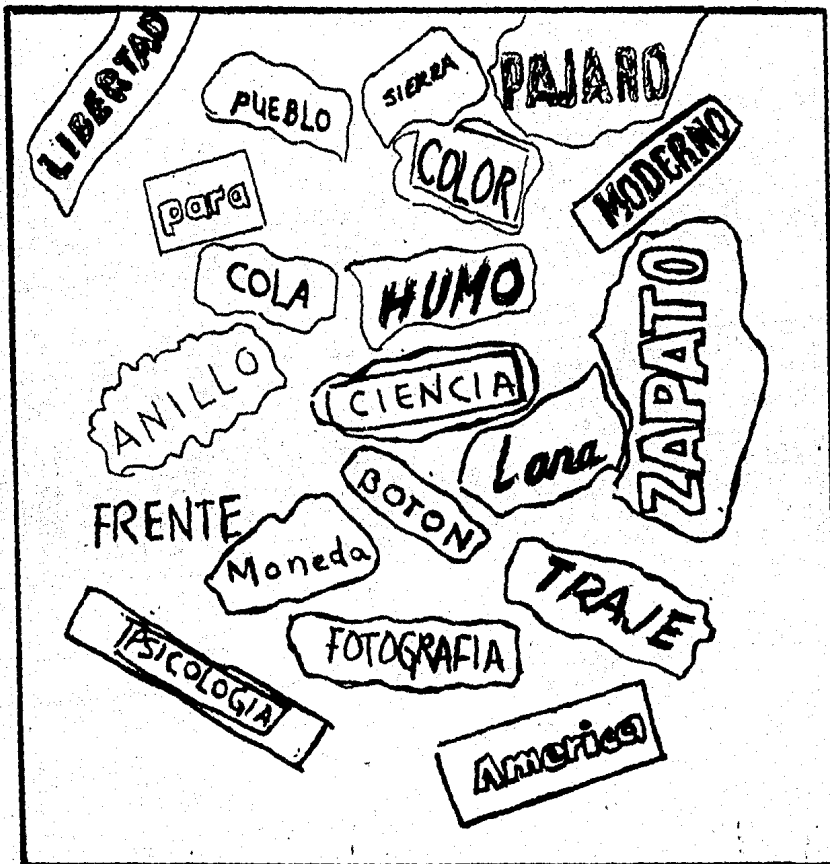 LIBERTAD
PUEBLO
SIERRA
PAJARO
para
COLOR
MODERNO
COLA
HUMO
ZAPATO
ANILLO
CIENCIA
Lana
BOTON
FRENTE
Moneda
TRAJE
PSICOLOGIA
FOTOGRAFIA
America